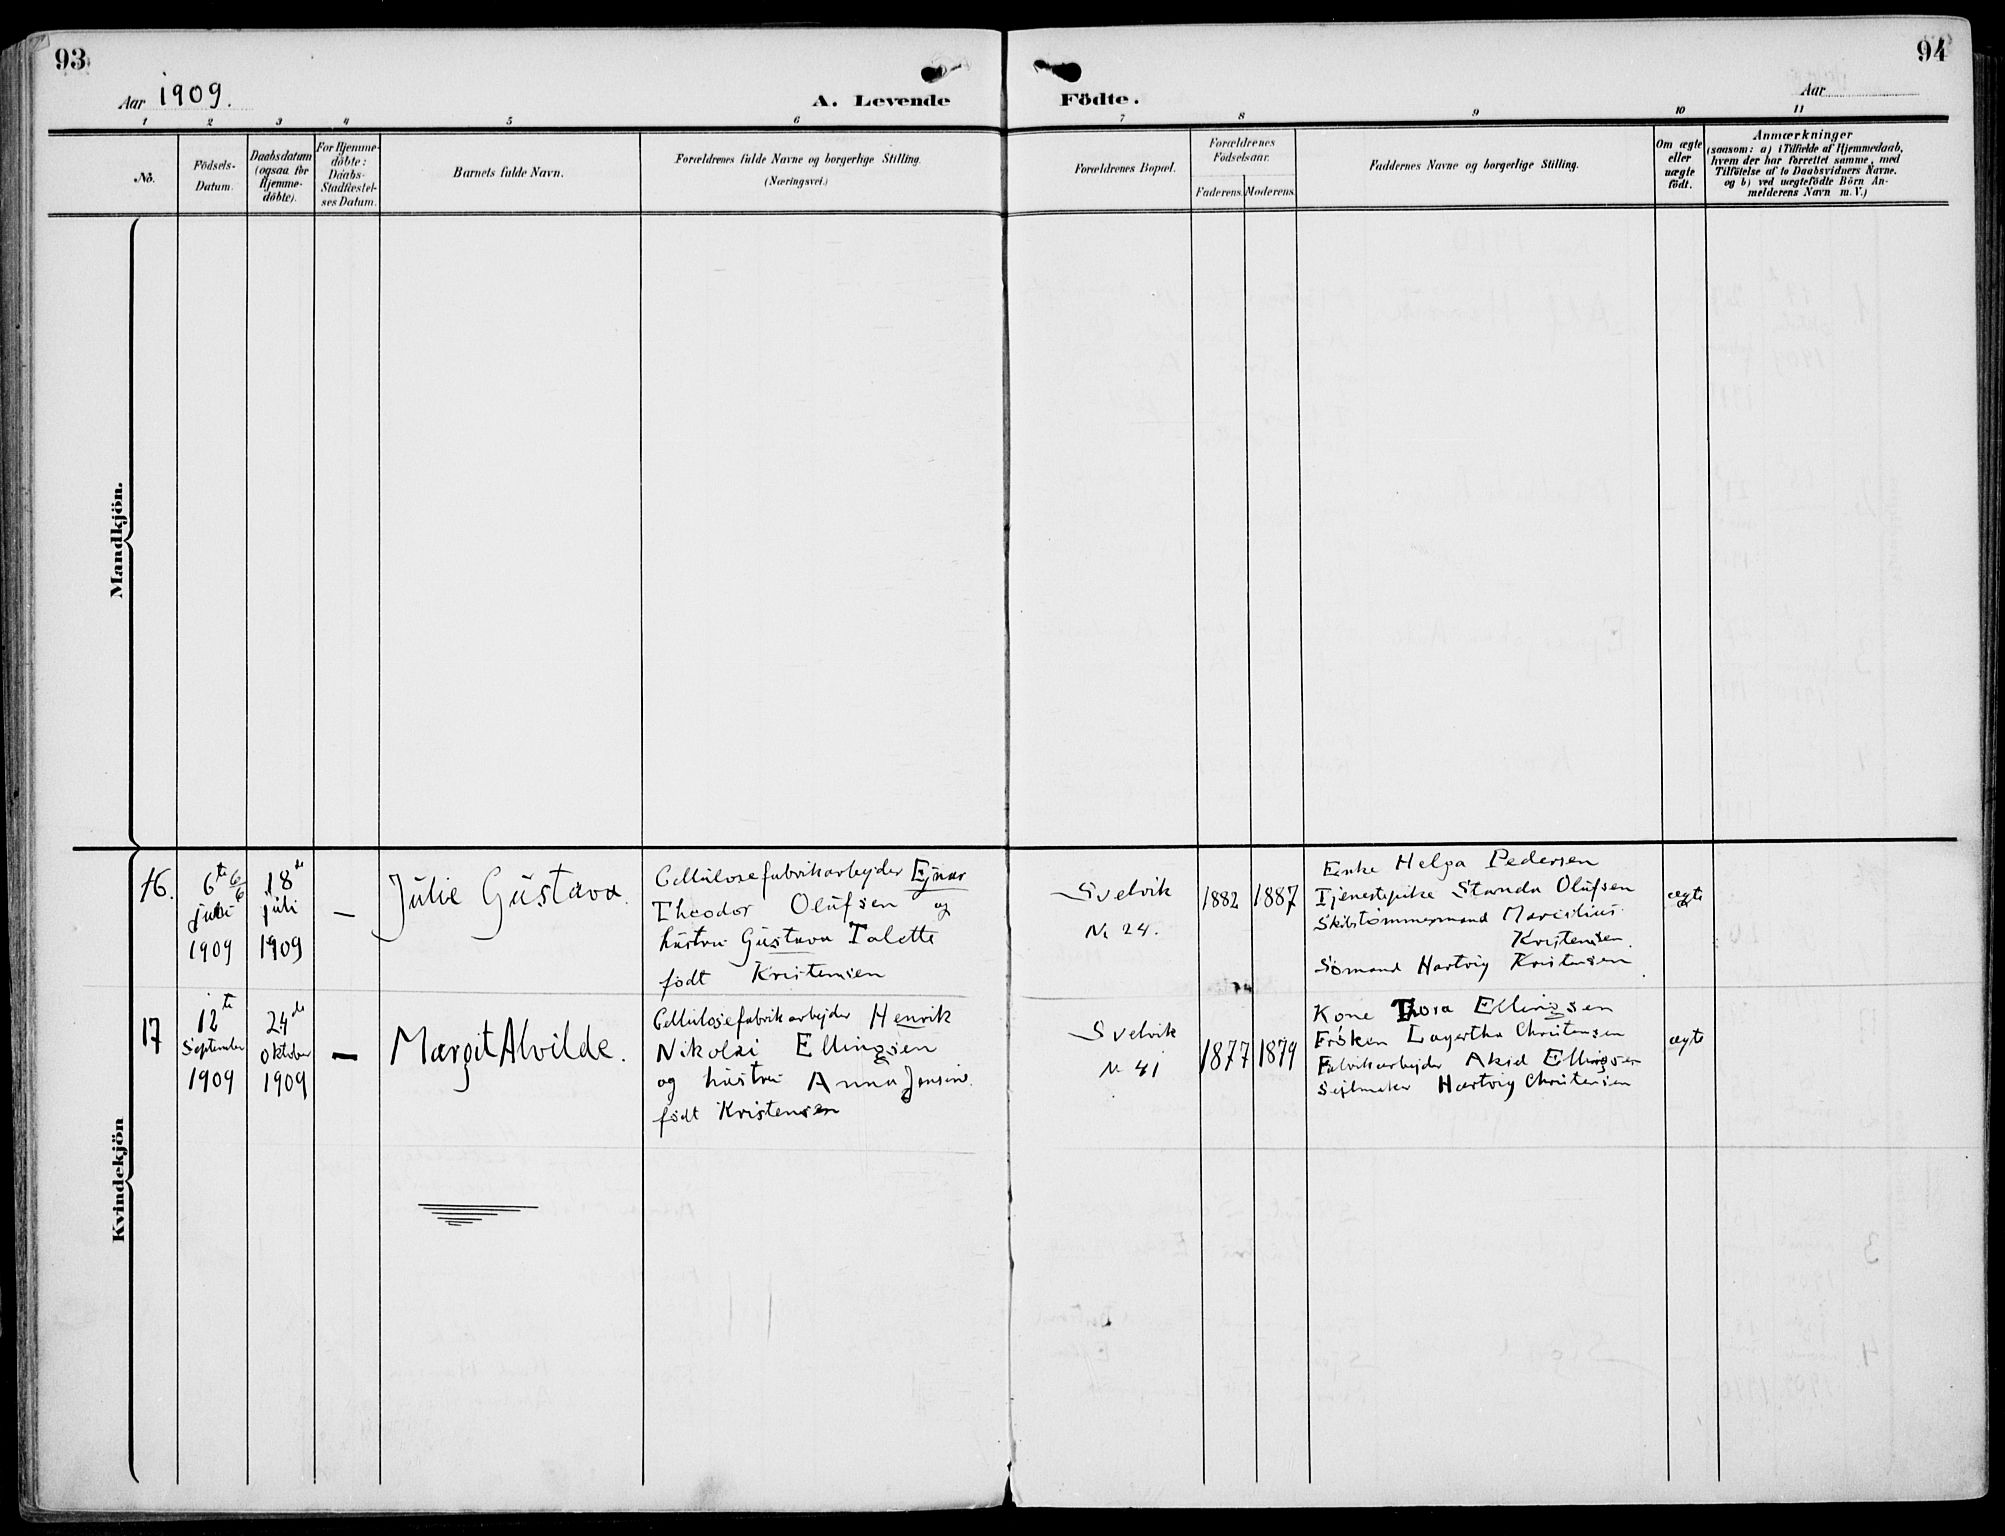 93
94
Aar 1909.
A. Levende Födte.
Aar
1 2 3 4 5 6 7 8 9 10 11
No.
Födsels-
Datum.
Daabsdatum
(ogsaa for
Hjemme-
döbte).
For Hjemme-
döbte:
Daabs-
Stadfæstel-
ses Datum.
Barnets fulde Navn.
Forældrenes fulde Navne og borgerlige Stilling.
(Næringsvei.)
Forældrenes Bopæl.
Forældrenes
Födselsaar.
Faderens. Moderens.
Faddernes Navne og borgerlige Stilling.
Om ægte
eller
uægte
födt.
Anmærkninger
(saasom: a) i Tilfælde af Hjemmedaab,
hvem der har forrettet samme, med
Tilföielse af to Daabsvidners Navne.
og b) ved uægtefödte Börn An-
melderens Navn m. V.)
Mandkjön.
Kvindekjön
16.
6te 6/6
1909
18de
juli
1909
—
Julie Gustava.
Cellulosefabrikarbejder Ejnar
Theodor Olufsen og
hustru Gustava Talette
født Kristensen
Svelvik
No 24.
1882
1887
Enke Helga Pedersen
Tjenestepike Olufsen
Skibstømmermand
Kristensen.
Sømand Hartvig Kristensen
ægte
17
12te
September
1909
24de
oktober
1909
—
Margit Alvilde.
Cellulosefabrikarbejder Henrik
Nikolai Ellingsen
og hustru Anna
født Kristensen
Svelvik
No 41
1877
1879
Kone Thora Ellingsen
Frøken Lagertha Christensen
Fabrikarbejder Ellingsen
Sejlmaker Hartvig Christensen
ægte